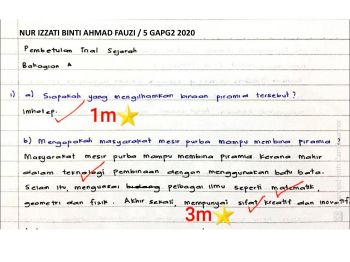 NUR IZZATI BINTI AHMAD FAUZI / 5 GAPG2 2020
Pembetulan Trial Sejarah
Bahagian A
1) a) Siapakah yang mengilhamkan binaan piramid tersebut?
Imhotep.
1m
b) Mengapakah masyarakat mesir purba mampu membina piramid?
Masyarakat mesir purba mampu membina piramid kerana mahir
dalam teknologi pembinaan dengan menggunakan batu bata.
Selain itu, menguasai pelbagai ilmu seperti matematik,
geometri dan fizik. Akhir sekali, mempunyai sifat kreatif dan inovatif
3m